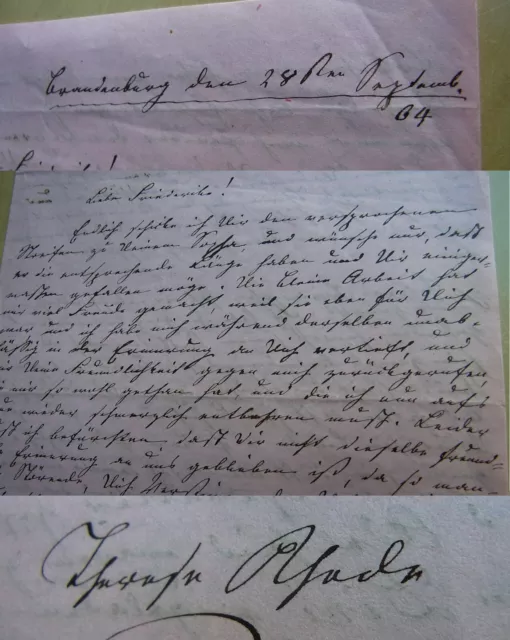 Brandenburg den 28sten Septemb.
64
Liebe Friederike!
Endlich schicke ich Dir den versprochenen
Streifen zu Deinem Sopha, und wünsche nur, daß
er die entsprechende Länge haben und Dir einiger-
maßen gefallen möge. Die kleine Arbeit hat
mir viel Freude gemacht, weil sie eben für Dich
war und ich habe mich während derselben unab-
lässig in der Erinnerung an Euch vertieft, und
Deine Freundlichkeit gegen mich zurückgerufen,
mir so wohl gethan hat, und die ich nun aufs
wieder schmerzlich entbehren muß. Leider
ich befürchten, daß Dir nicht dieselbe freund-
Erinnerung an uns geblieben ist, da so man-
Störende,
Therese Rhode